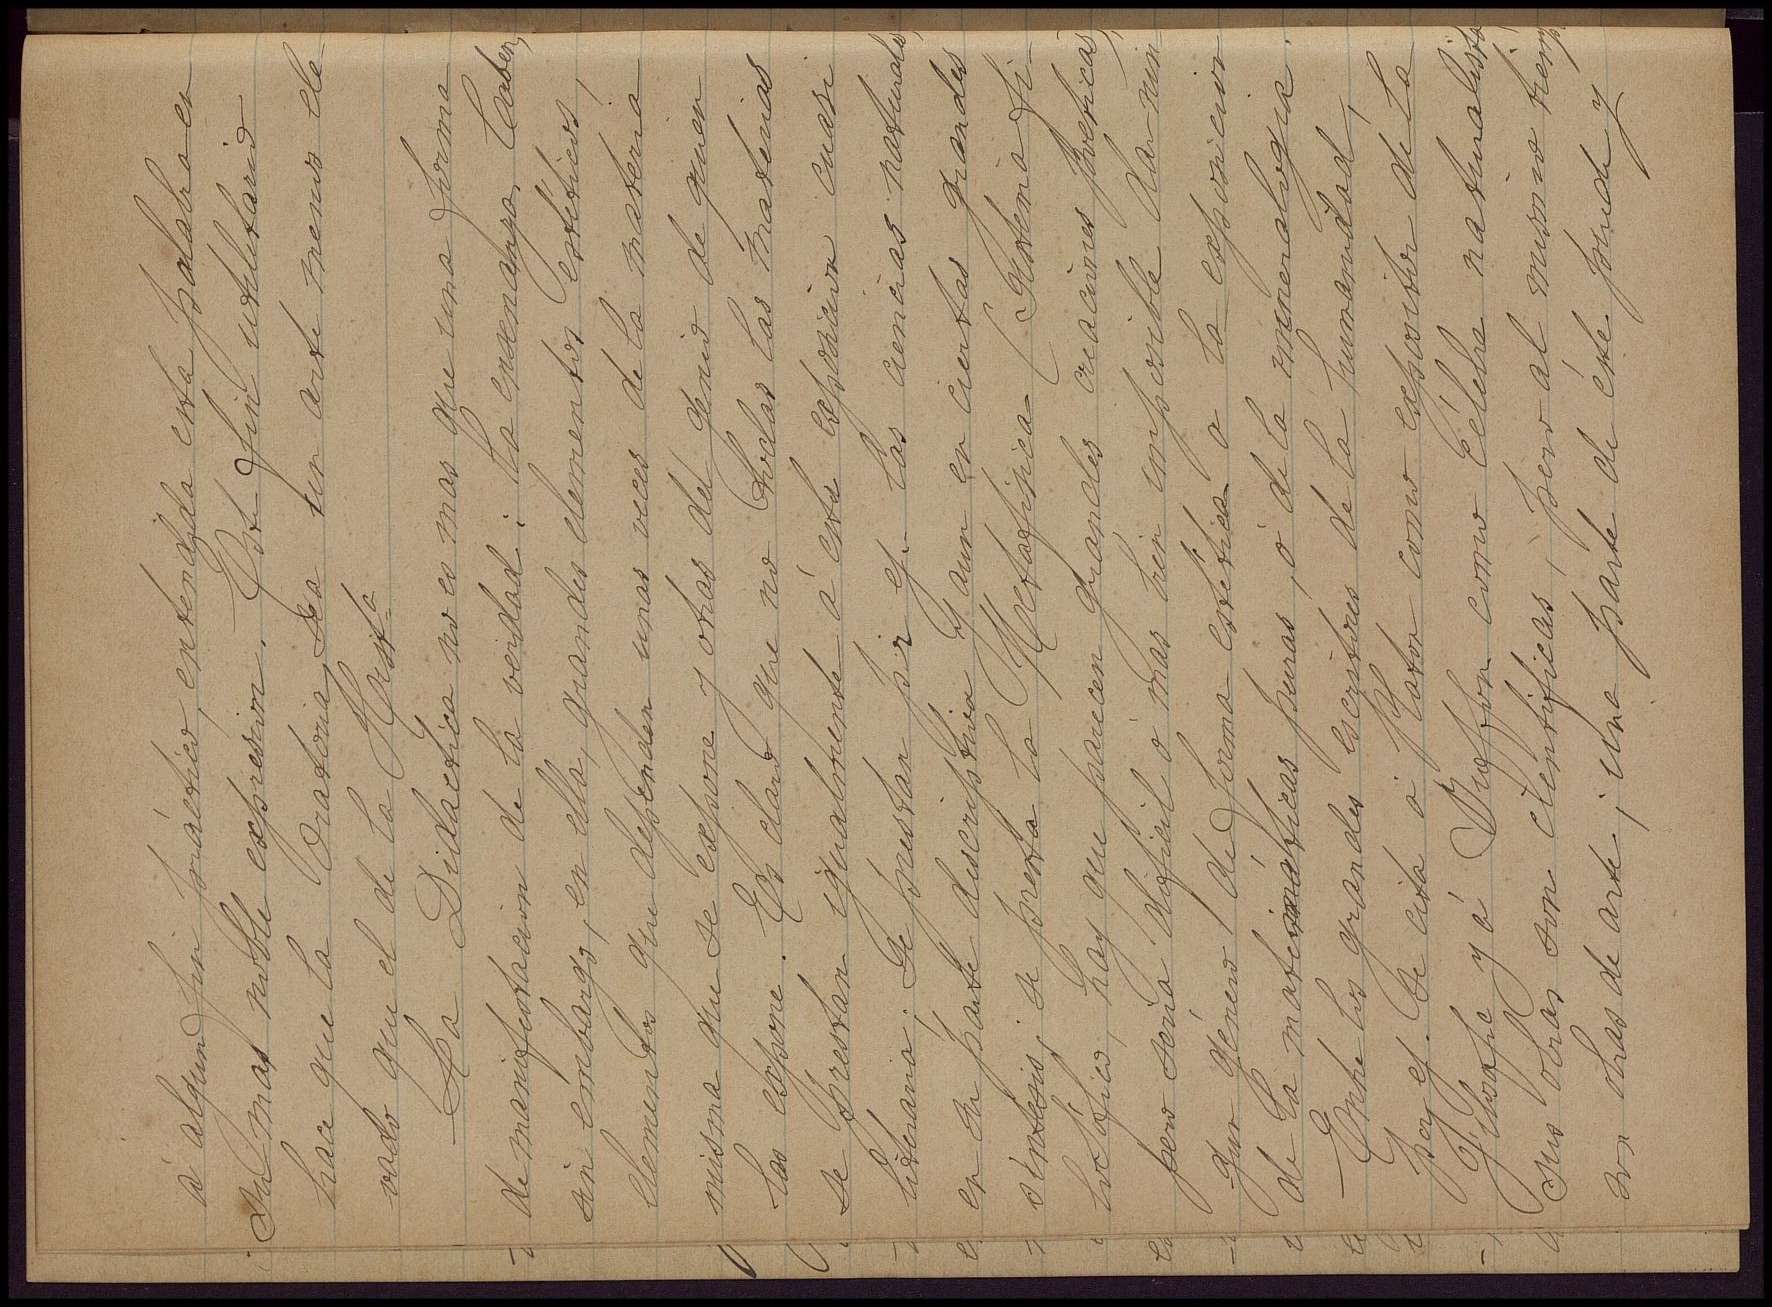 á algun fin práctico, entendida esta palabra en
su mas noble expresion. Este fin utilitario
hace que la Oratoria sea un arte menos ele
vado que el de la Musa
La Didactica no es mas que una forma
de manifestacion de la verdad: la enseñanza. Caben,
sin embargo, en ella, grandes elementos estéticos,
elementos que dependen unas veces de la materia
misma que se expone y otras del genio de quien
las expone. Es claro que no todas las materias
se prestan igualmente á esta exposicion cuasi
literaria. Se prestan por ej. las ciencias naturales
en su parte descriptiva y aun en ciertas grandes
síntesis; se presta la Metafisica (Sistema fi-
losófico, hay que parecen grandes creaciones poeticas),
pero seria dificil o mas bien imposible dar nin
gun género de forma estética a la exposicion
de la matemáticas puras, ó de la mineralogia.
Entre los grandes escritores de la humanidad,
por ej. se cita á Platon como expositor de la
filosofia y á Buffon como célebre naturalista
sus obras son cientificas, pero al mismo tiempo
son obras de arte; una parte de éste pende y